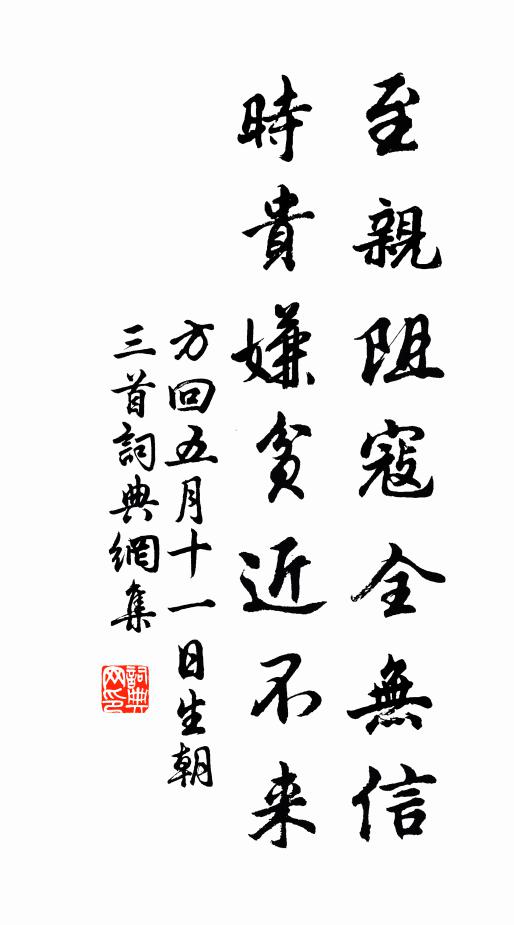 至親阻寇全無信
時貴嫌貧近不来
方回五月十一日生朝
三首詞典網集
詞典
网印